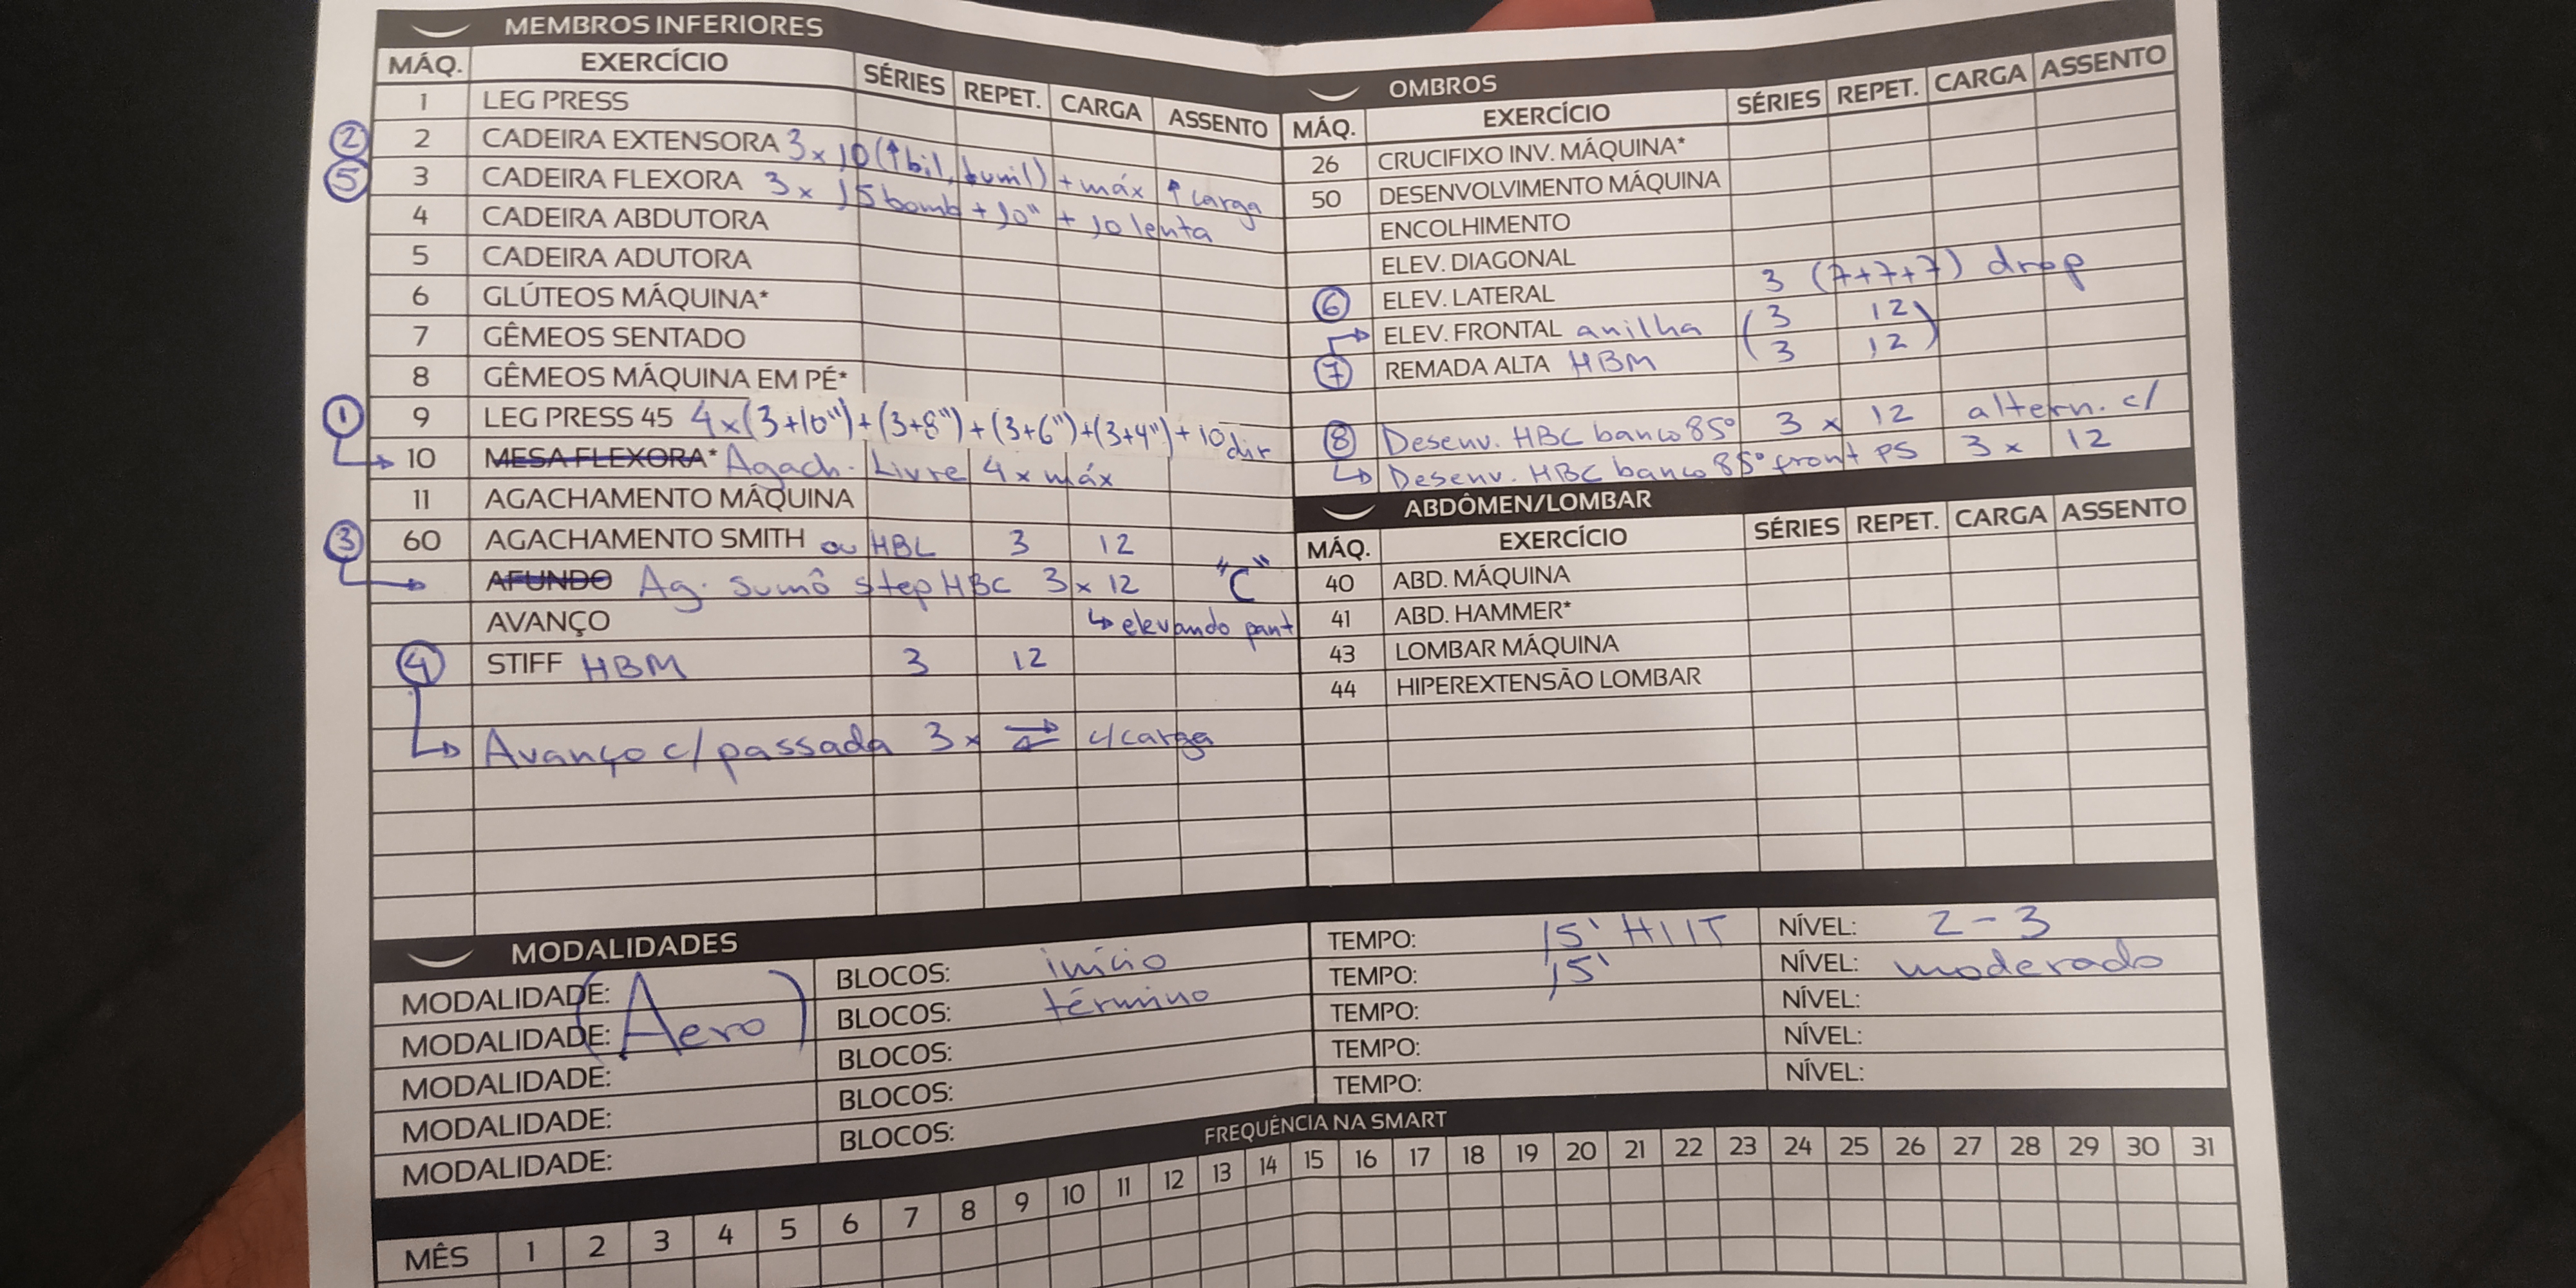 MEMBROS INFERIORES
MÁQ. EXERCÍCIO SÉRIES REPET. CARGA ASSENTO
1 LEG PRESS
② 2 CADEIRA EXTENSORA 3 x 10 (↑bil, ↓unil) + máx ↑ carga
⑤ 3 CADEIRA FLEXORA 3 x 15 bomb + 10" + 10 lenta
4 CADEIRA ABDUTORA
5 CADEIRA ADUTORA
6 GLÚTEOS MÁQUINA*
7 GÊMEOS SENTADO
8 GÊMEOS MÁQUINA EM PÉ*
① 9 LEG PRESS 45 4x(3+10")+(3+8")+(3+6")+(3+4")+10 dir
→ 10 MESA FLEXORA* Agach. Livre 4 x máx
11 AGACHAMENTO MÁQUINA
③ 60 AGACHAMENTO SMITH ou HBL 3 12
→ AFUNDO Ag. sumô step HBC 3 x 12 "C"
AVANÇO ↳ elevando pant
④ STIFF HBM 3 12
↳ Avanço c/ passada 3x ⇄ c/ carga
OMBROS
MÁQ. EXERCÍCIO SÉRIES REPET. CARGA ASSENTO
26 CRUCIFIXO INV. MÁQUINA*
50 DESENVOLVIMENTO MÁQUINA
ENCOLHIMENTO
ELEV. DIAGONAL
⑥ ELEV. LATERAL 3 (7+7+7) drop
→ ELEV. FRONTAL anilha (3 12)
⑦ REMADA ALTA HBM (3 12)
⑧ Desenv. HBC banco 85° 3 x 12 altern. c/
↳ Desenv. HBC banco 85° front PS 3 x 12
ABDÔMEN/LOMBAR
MÁQ. EXERCÍCIO SÉRIES REPET. CARGA ASSENTO
40 ABD. MÁQUINA
41 ABD. HAMMER*
43 LOMBAR MÁQUINA
44 HIPEREXTENSÃO LOMBAR
MODALIDADES
MODALIDADE: (Aero) BLOCOS: início TEMPO: 15' HIIT NÍVEL: 2-3
MODALIDADE: BLOCOS: término TEMPO: 15' NÍVEL: moderado
MODALIDADE: BLOCOS: TEMPO: NÍVEL:
MODALIDADE: BLOCOS: TEMPO: NÍVEL:
MODALIDADE: BLOCOS: TEMPO: NÍVEL:
FREQUÊNCIA NA SMART
MÊS 1 2 3 4 5 6 7 8 9 10 11 12 13 14 15 16 17 18 19 20 21 22 23 24 25 26 27 28 29 30 31